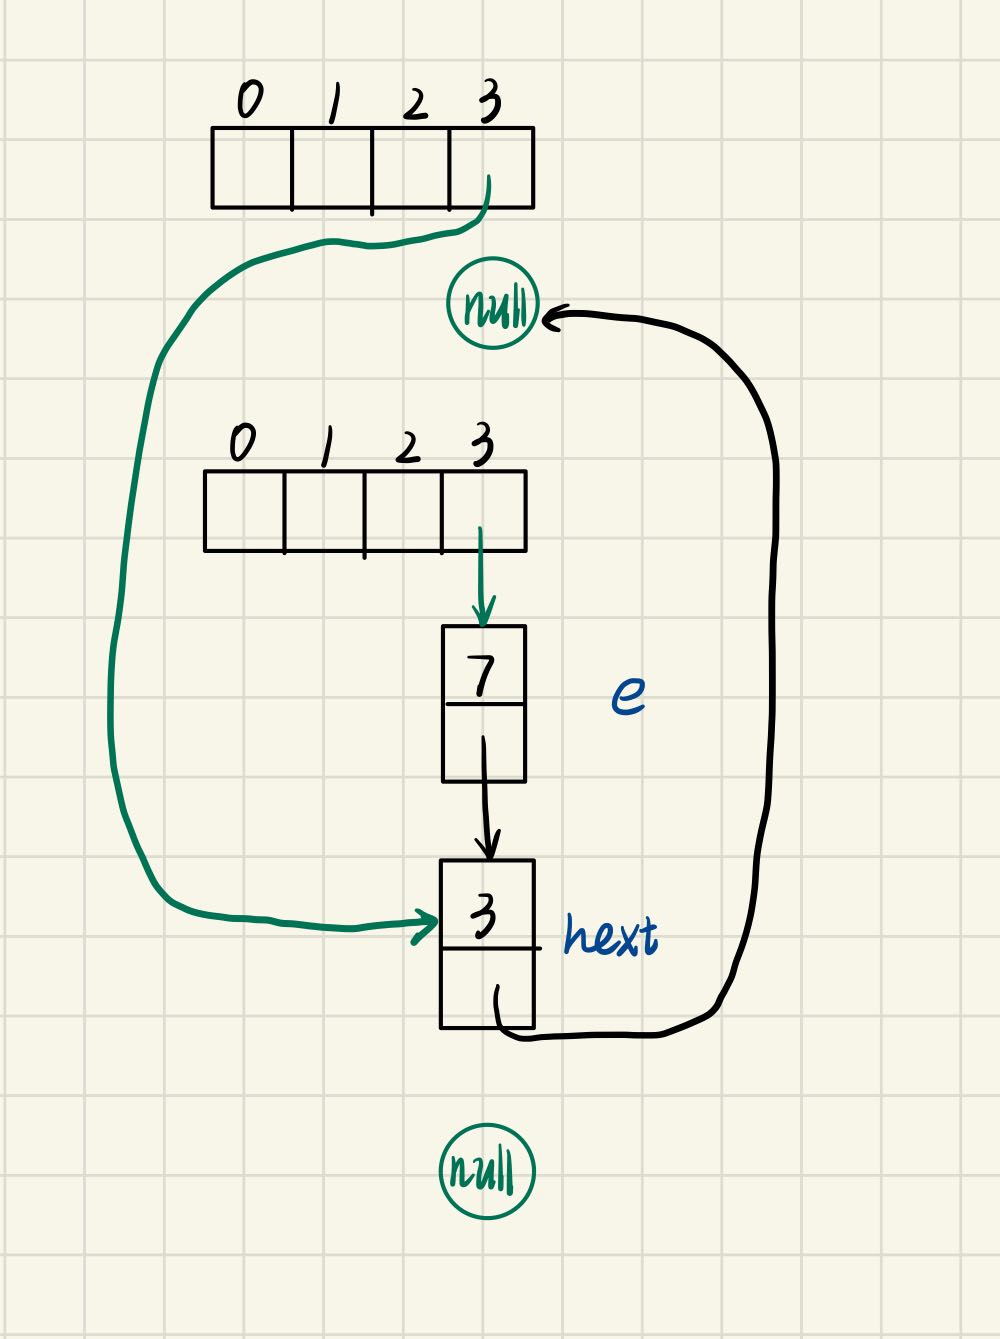 0 1 2 3
null
0 1 2 3
7
e
3
next
null